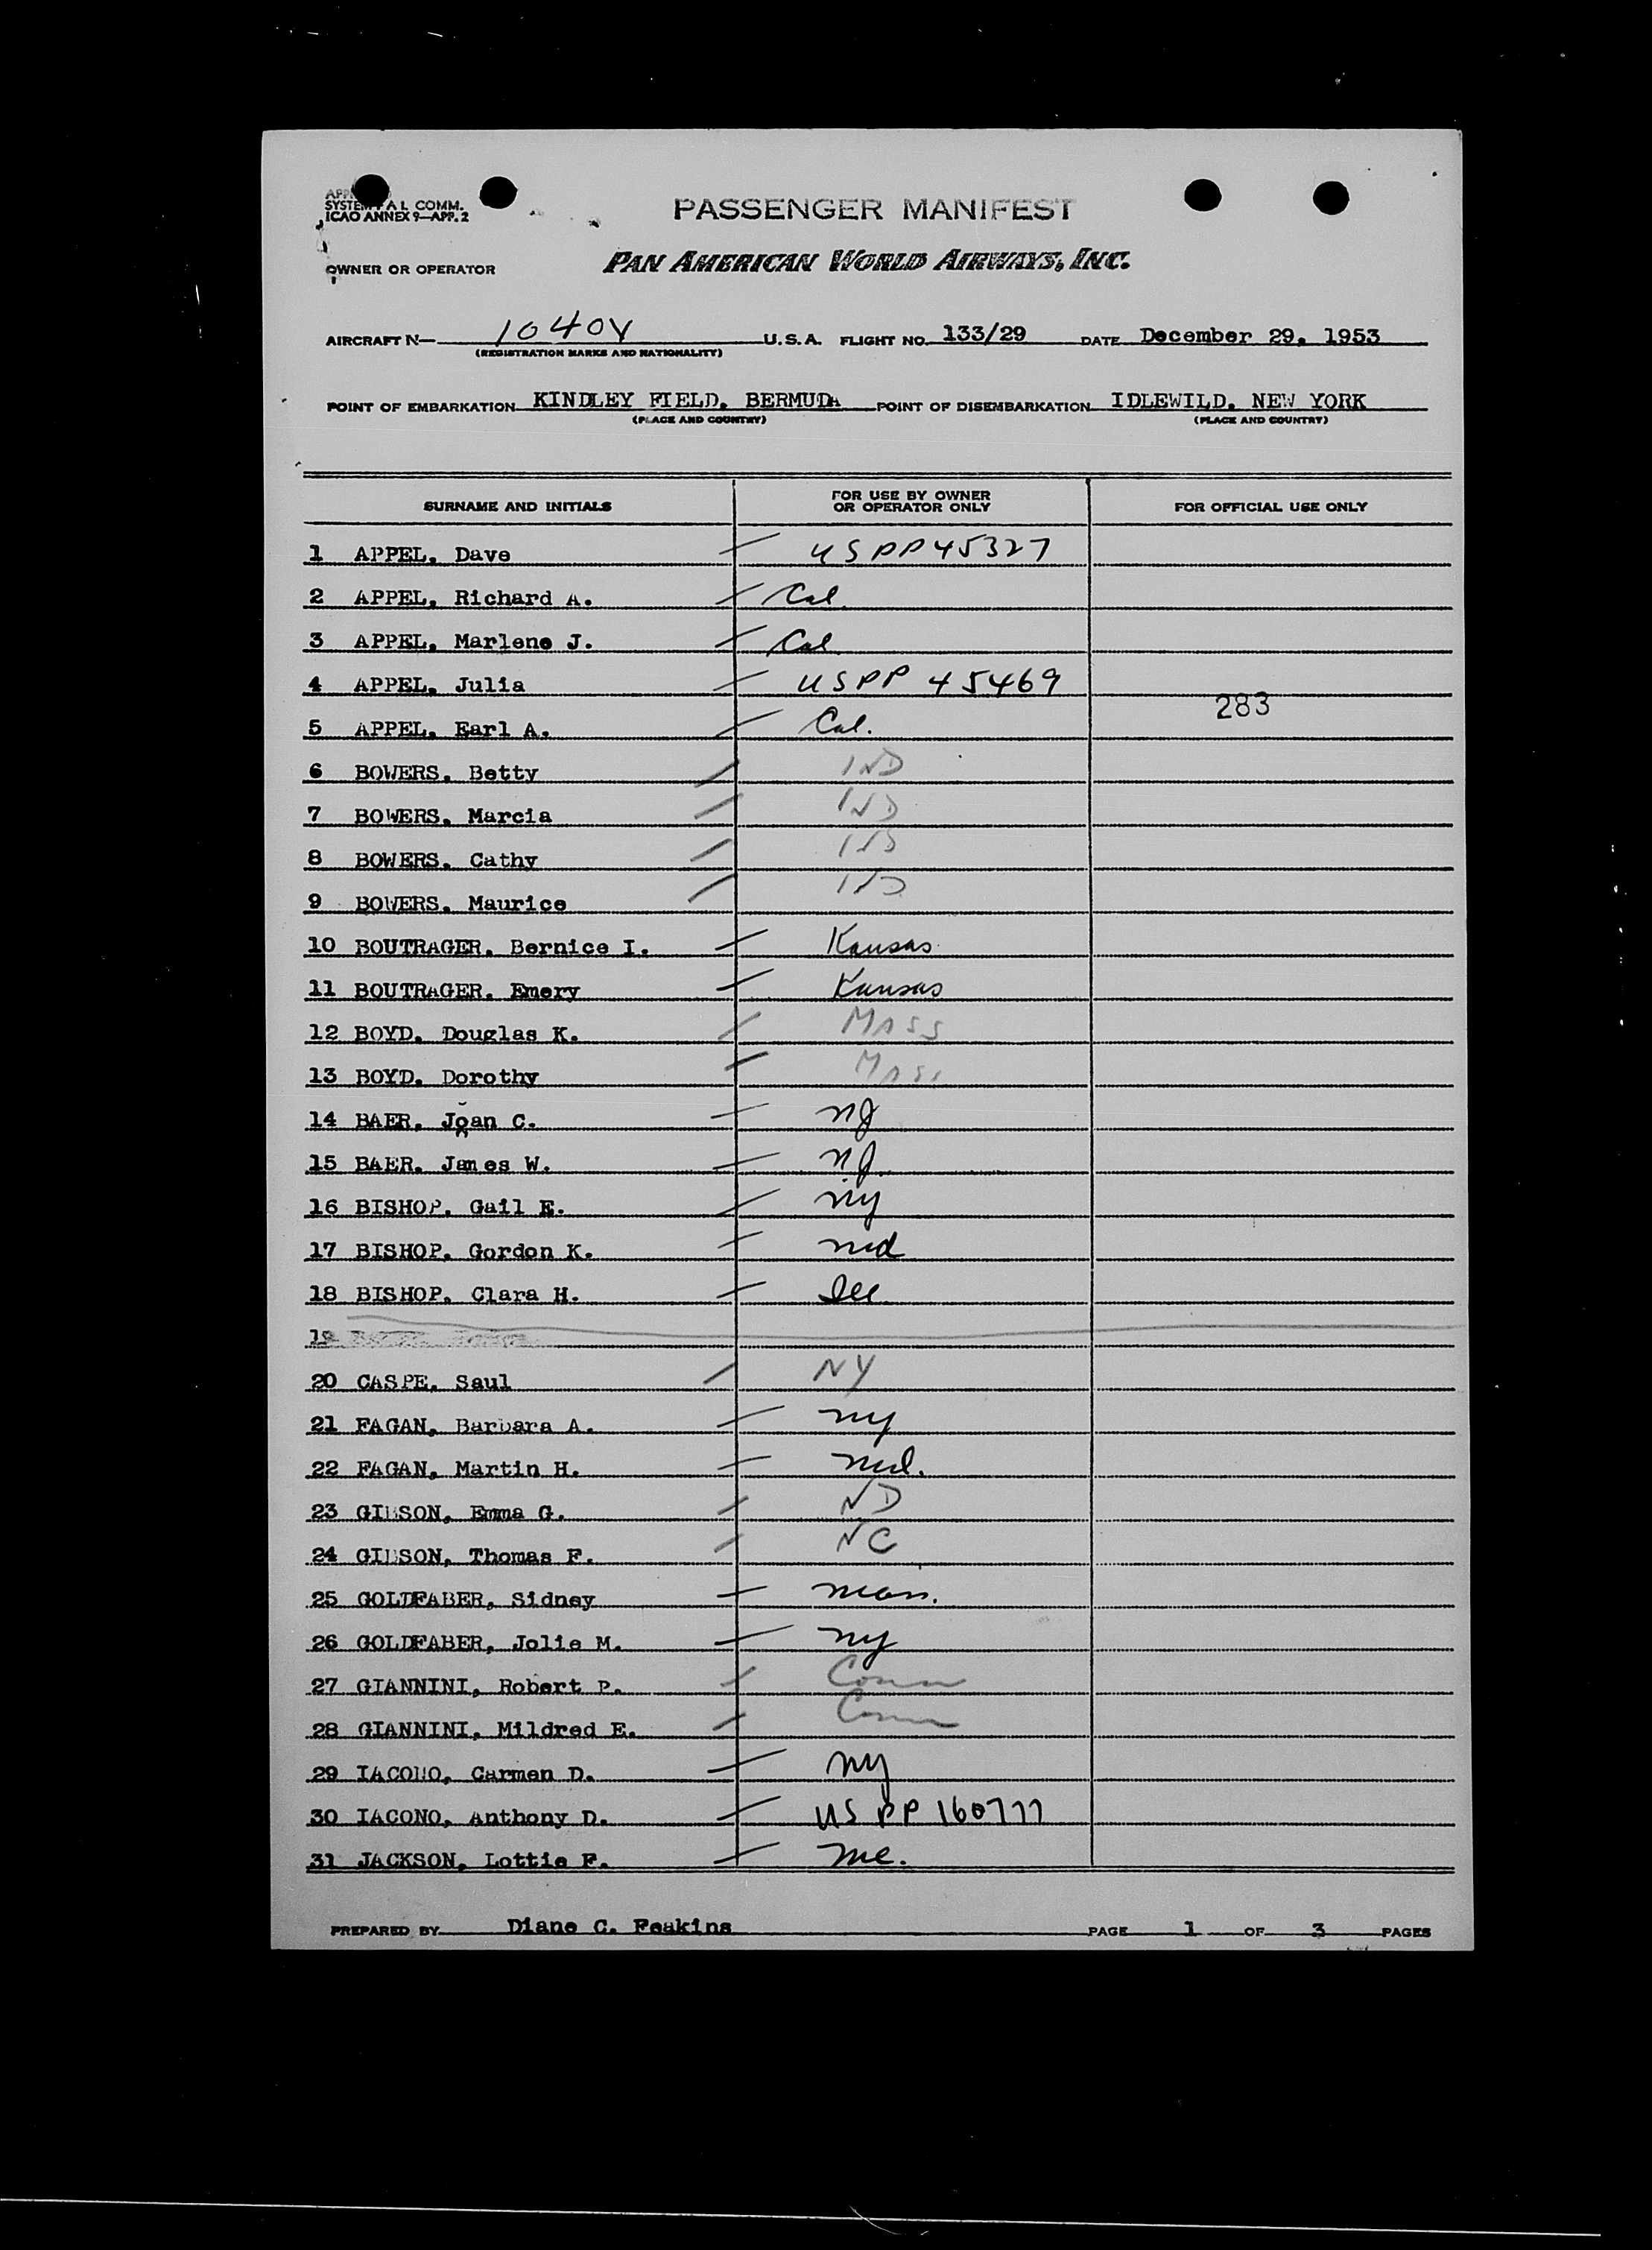 SYSTEM A L COMM.
ICAO ANNEX 9—APP. 2
PASSENGER MANIFEST
OWNER OR OPERATOR PAN AMERICAN WORLD AIRWAYS, INC.
AIRCRAFT N— 1040V U.S.A. FLIGHT NO. 133/29 DATE December 29, 1953
(REGISTRATION MARKS AND NATIONALITY)
POINT OF EMBARKATION KINDLEY FIELD, BERMUDA POINT OF DISEMBARKATION IDLEWILD, NEW YORK
(PLACE AND COUNTRY) (PLACE AND COUNTRY)
SURNAME AND INITIALS FOR USE BY OWNER OR OPERATOR ONLY FOR OFFICIAL USE ONLY
1 APPEL, Dave USPP45327
2 APPEL, Richard A. Cal.
3 APPEL, Marlene J. Cal.
4 APPEL, Julia USPP 45469
283
5 APPEL, Earl A. Cal.
6 BOWERS, Betty IND
7 BOWERS, Marcia IND
8 BOWERS, Cathy IND
9 BOWERS, Maurice IND
10 BOUTRAGER, Bernice I. Kansas
11 BOUTRAGER, Emery Kansas
12 BOYD, Douglas K. MASS
13 BOYD, Dorothy MASS
14 BAER, Joan C. NJ
15 BAER, James W. NJ.
16 BISHOP, Gail E. NY
17 BISHOP, Gordon K. Md
18 BISHOP, Clara H. Ill
19
20 CASPE, Saul NY
21 FAGAN, Barbara A. NY
22 FAGAN, Martin H. Md.
23 GIBSON, Emma G. ND
24 GIBSON, Thomas F. NC
25 GOLDFABER, Sidney Mass.
26 GOLDFABER, Jolie M. NY
27 GIANNINI, Robert P. Conn
28 GIANNINI, Mildred E. Conn
29 IACONO, Carmen D. NY
30 IACONO, Anthony D. US PP 160777
31 JACKSON, Lottie F. Me.
PREPARED BY Diane C. Feakins PAGE 1 OF 3 PAGES